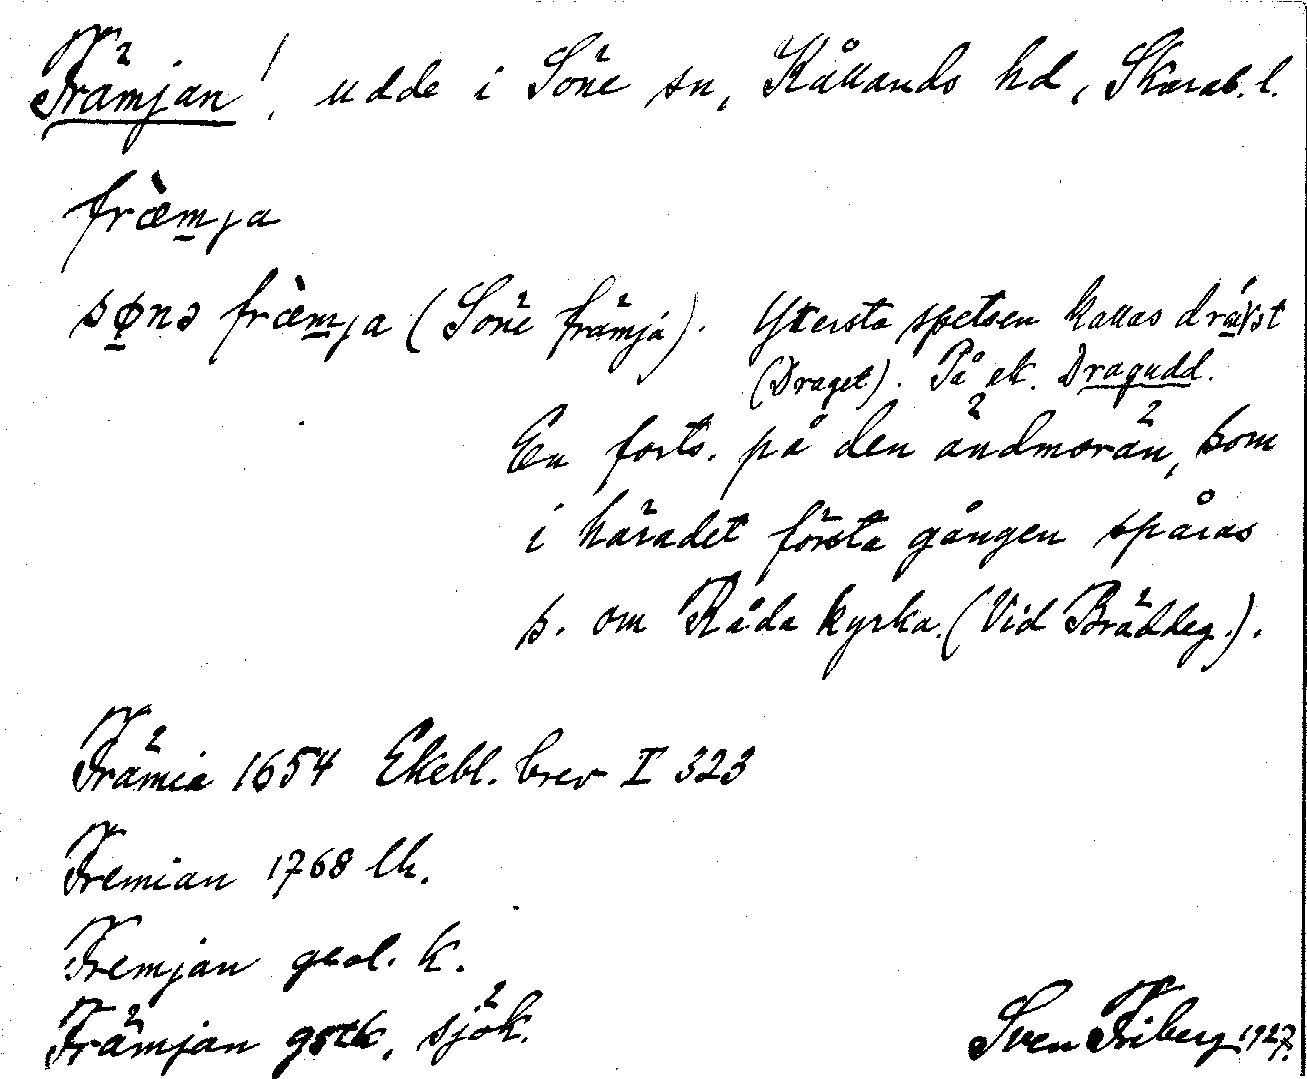 Främjan!, udde i Söne sn, Kållands hd, Skarab. l.
fræ̀m̲ja
sø̲nə fræ̀m̲ja (Söne främja). Yttersta spetsen kallas
(Draget). På ek. Dragudd.
En forts. på den ändmorän, som
i häradet första gången spåras
s. om Råda kyrka. (Vid Bräddeg.).
Främia 1654 Ekebl. brev I 323
Fremian 1768 lh.
Fremjan geol. k.
Främjan gstk, sjök.
Sven Friberg 1927.